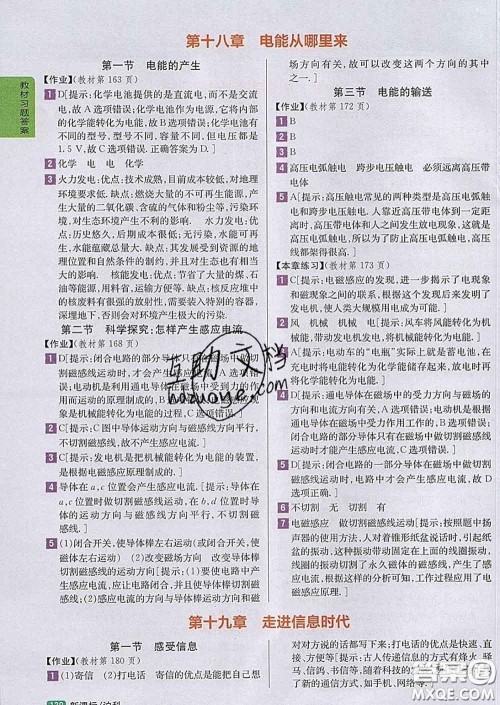 第十八章 电能从哪里来
第一节 电能的产生
【作业】(教材第163页)
1 D[提示:化学电池提供的是直流电,而不是交流
电,故A选项错误;化学电池作为电源,它将内部
的化学能转化为电能,故B选项错误;化学电池有
不同的型号,不同型号的容量不同,但电压都是
1.5V,故C选项错误.正确答案为D.]
2 化学 电 电 化学
3 火力发电:优点:技术成熟,目前成本较低,对地理
环境要求低.缺点:燃烧大量的不可再生能源,产
生大量的二氧化碳、含硫的气体和粉尘等,污染环
境,对生态环境产生不利的影响. 水力发电:优
点:历史悠久,后期成本很低,无污染,水能可再
生,水能蕴藏总量大.缺点:其发展受到资源的地
理位置和自然条件的制约,并且大坝对生态环境
有影响. 核能发电:优点:节省了大量的煤、石
油等能源,用料省,运输方便等.缺点:核电站中
的核废料有很强的放射性,需要装入特别的容器,
深埋地下,也会对环境产生极大的污染.
第二节 科学探究:怎样产生感应电流
【作业】(教材第168页)
1 D[提示:闭合电路的部分导体只有在磁场中做切
割磁感线运动时,
误;电动机是利用通电导体在磁场中受到力的作
用而运动的原理制成的,B选项错误;
象是机械能转化为电能,C选项错误.]
2 C[提示:C图中导体运动方向与磁感线方向平行,
不切割磁感线,故不产生感应电流.]
3 C[提示:发电机是把机械能转化为电能的装置,是
根据电磁感应原理制成的.]
4 导体在a,c位置上才会产生感应电流.[提示:导体
在a,c位置时做切割磁感线运动,在b,d位置时导
体的运动方向与磁感线方向平行,不切割磁感线.]
5 (1)闭合开关,使导体棒左右运动(或闭合开关,使
磁体左右运动) (2)改变磁场方向 改变导体棒切
割磁感线的运动方向[提示:(1)要使电路中产生
感应电流,应让电路闭合,并且使导体棒切割磁感
线;(2)感应电流的方向与导体棒运动方向和磁
场方向有关,故可以改变这两个方向的其中之
一.]
第三节 电能的输送
【作业】(教材第172页)
1 B
2 B
3 B
4 高压电弧触电 跨步电压触电 必须远离高压带
电体
5 A[提示:高压电常见的两种类型是高压电弧触电
和跨步电压触电.人靠近高压带电体到一定距离
时,高压带电体和人之间会发生放电现象,电流通
过人体,造成高压电弧触电;高压输电线掉落在地
面上,当人经过时,两脚之间存在相当高的电压,
造成触电.所以为了防止高压触电,我们应远离高
压带电体.]
【本章练习】(教材第173页)
1 C[提示:电磁感应的发现,进一步揭示了电现象
和磁现象之间的联系,根据这个发现后来发明了
发电机,使人类大规模用电成为可能.]
2 风 机械 机械 电[提示:风车将风能转化为机械
能,带动发电机发电,把机械能转化为电能.]
3 A[提示:电动车的“电瓶”实际上就是蓄电池,在
充电时将电能转化为化学能,工作时将化学能转
化为电能.]
4 D[提示:通电导体在磁场中的受力方向与磁场的
方向和电流方向有关,D选项错误;
闭合电路的部分导体做切割磁感线运动时,
错误.]
5 D[提示:闭合电路的一部分导体在磁场中做切割
磁感线运动时,电路中才会产生感应电流,故选
D选项正确.]
6 不切割 无 切割 有
7 电磁感应 做切割磁感线运动[提示:按照题中扬
声器的使用方法,人对着锥形纸盆说话时,引起纸
盆的振动,这种振动带动固定在上面的线圈振动,
线圈的振动切割了永久磁体的磁感线,也就产生
了感应电流,且电流随着声音的变化而变化,故其
工作过程应用了电磁感应的原理.]
第十九章 走进信息时代
第一节 感受信息
【作业】(教材第180页)
1 (1)寄信 打电话 寄信的优点是能把自己想
对对方说的话都写下来;打电话的优点是快速、
直接,能听到对方的声音等. (2)示例:
古人传递信息的方式有烽火台、
鸽、击鼓等方式.当今社会,随着科技的
了新的通信方式,如手机、
130 新课标/沪科
教材习题答案
互助文档
hozuowz.com
答案圈
MXQE.COM